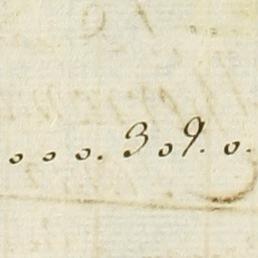 o o o. 3 o 9. o.